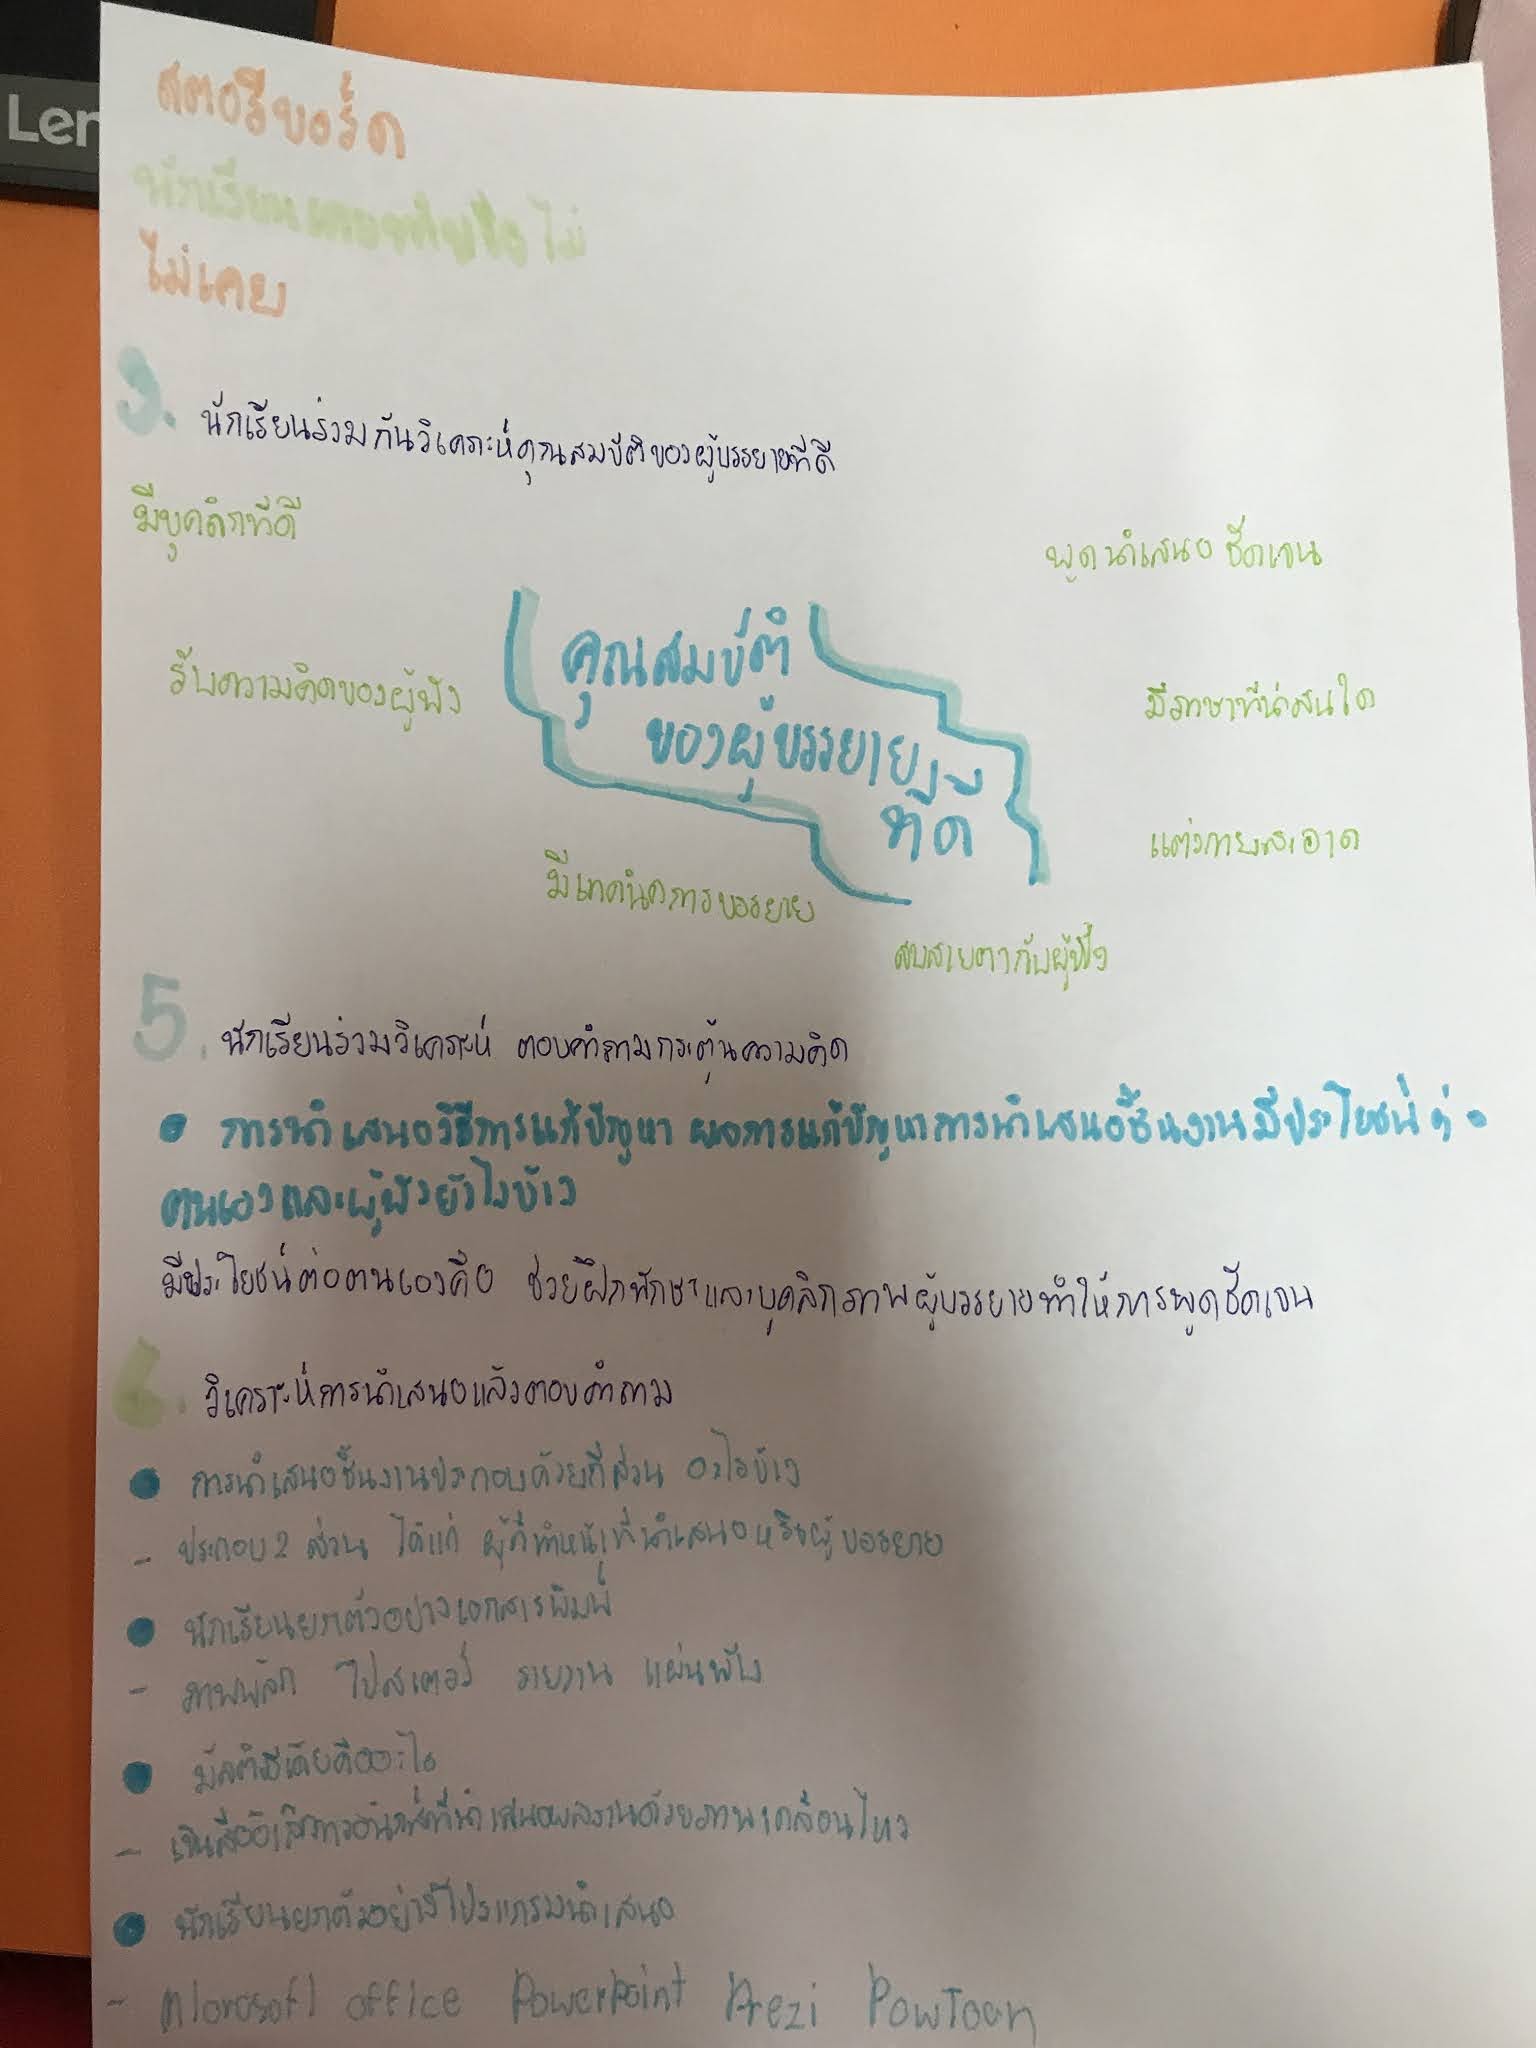 Len
สตอรีบอร์ด
นักเรียนเคยทำหรือไม่
ไม่เคย
3. นักเรียนร่วมกันวิเคราะห์คุณสมบัติของผู้บรรยายที่ดี
มีบุคลิกที่ดี
พูดนำเสนอ ชัดเจน
คุณสมบัติ
รับความคิดของผู้ฟัง
มีภาษาที่น่าสนใจ
ของผู้บรรยาย
ที่ดี
แต่งกายสะอาด
มีเทคนิคการบรรยาย
สบสายตากับผู้ฟัง
5. นักเรียนร่วมวิเคราะห์ ตอบคำถามกระตุ้นความคิด
• การนำเสนอวิธีการแก้ปัญหา ผลการแก้ปัญหาการนำเสนอชิ้นงานมีประโยชน์ต่อ
ตนเองและผู้ฟังยังไงบ้าง
มีประโยชน์ต่อตนเองคือ ช่วยฝึกทักษะและบุคลิกภาพผู้บรรยายทำให้การพูดชัดเจน
6. วิเคราะห์การนำเสนอแล้วตอบคำถาม
• การนำเสนอชิ้นงานประกอบด้วยกี่ส่วน อะไรบ้าง
- ประกอบ 2 ส่วน ได้แก่ ผู้ที่ทำหน้าที่นำเสนอหรือผู้บรรยาย
• นักเรียนยกตัวอย่างเอกสารพิมพ์
- ภาพพลิก โปสเตอร์ รายงาน แผ่นพับ
• มัลติมีเดียคืออะไร
- เป็นสื่ออิเล็กทรอนิกส์ที่นำเสนอผลงานด้วยภาพเคลื่อนไหว
• นักเรียนยกตัวอย่างโปรแกรมนำเสนอ
- Microsoft office PowerPoint Prezi PowToon